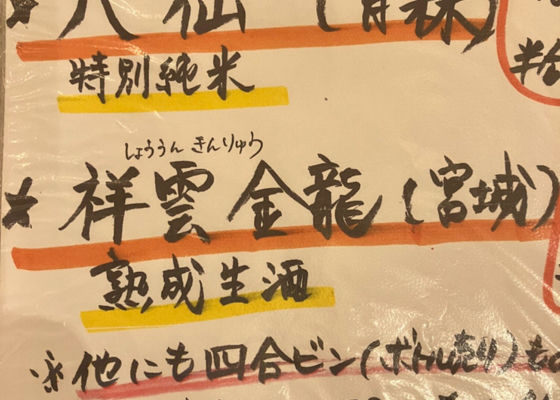 ★八仙(青森)
特別純米
半
しょううん きんりゅう
★祥雲金龍(宮城)
熟成生酒
※他にも四合ビン(ボトル売り)も